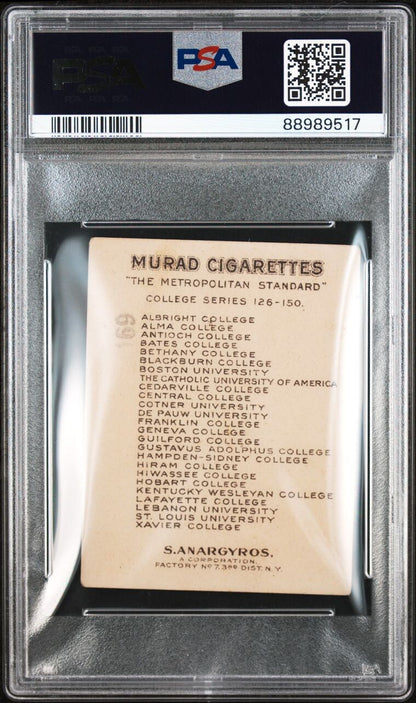 PSA
PSA
88989517
MURAD CIGARETTES
"THE METROPOLITAN STANDARD"
COLLEGE SERIES 126-150.
ALBRIGHT COLLEGE
ALMA COLLEGE
ANTIOCH COLLEGE
BATES COLLEGE
BETHANY COLLEGE
BLACKBURN COLLEGE
BOSTON UNIVERSITY
THE CATHOLIC UNIVERSITY OF AMERICA
CEDARVILLE COLLEGE
CENTRAL COLLEGE
COTNER UNIVERSITY
DE PAUW UNIVERSITY
FRANKLIN COLLEGE
GENEVA COLLEGE
GUILFORD COLLEGE
GUSTAVUS ADOLPHUS COLLEGE
HAMPDEN-SIDNEY COLLEGE
HIRAM COLLEGE
HIWASSEE COLLEGE
HOBART COLLEGE
KENTUCKY WESLEYAN COLLEGE
LAFAYETTE COLLEGE
LEBANON UNIVERSITY
ST. LOUIS UNIVERSITY
XAVIER COLLEGE
S. ANARGYROS.
A CORPORATION.
FACTORY No 7. 3RD DIST. N.Y.